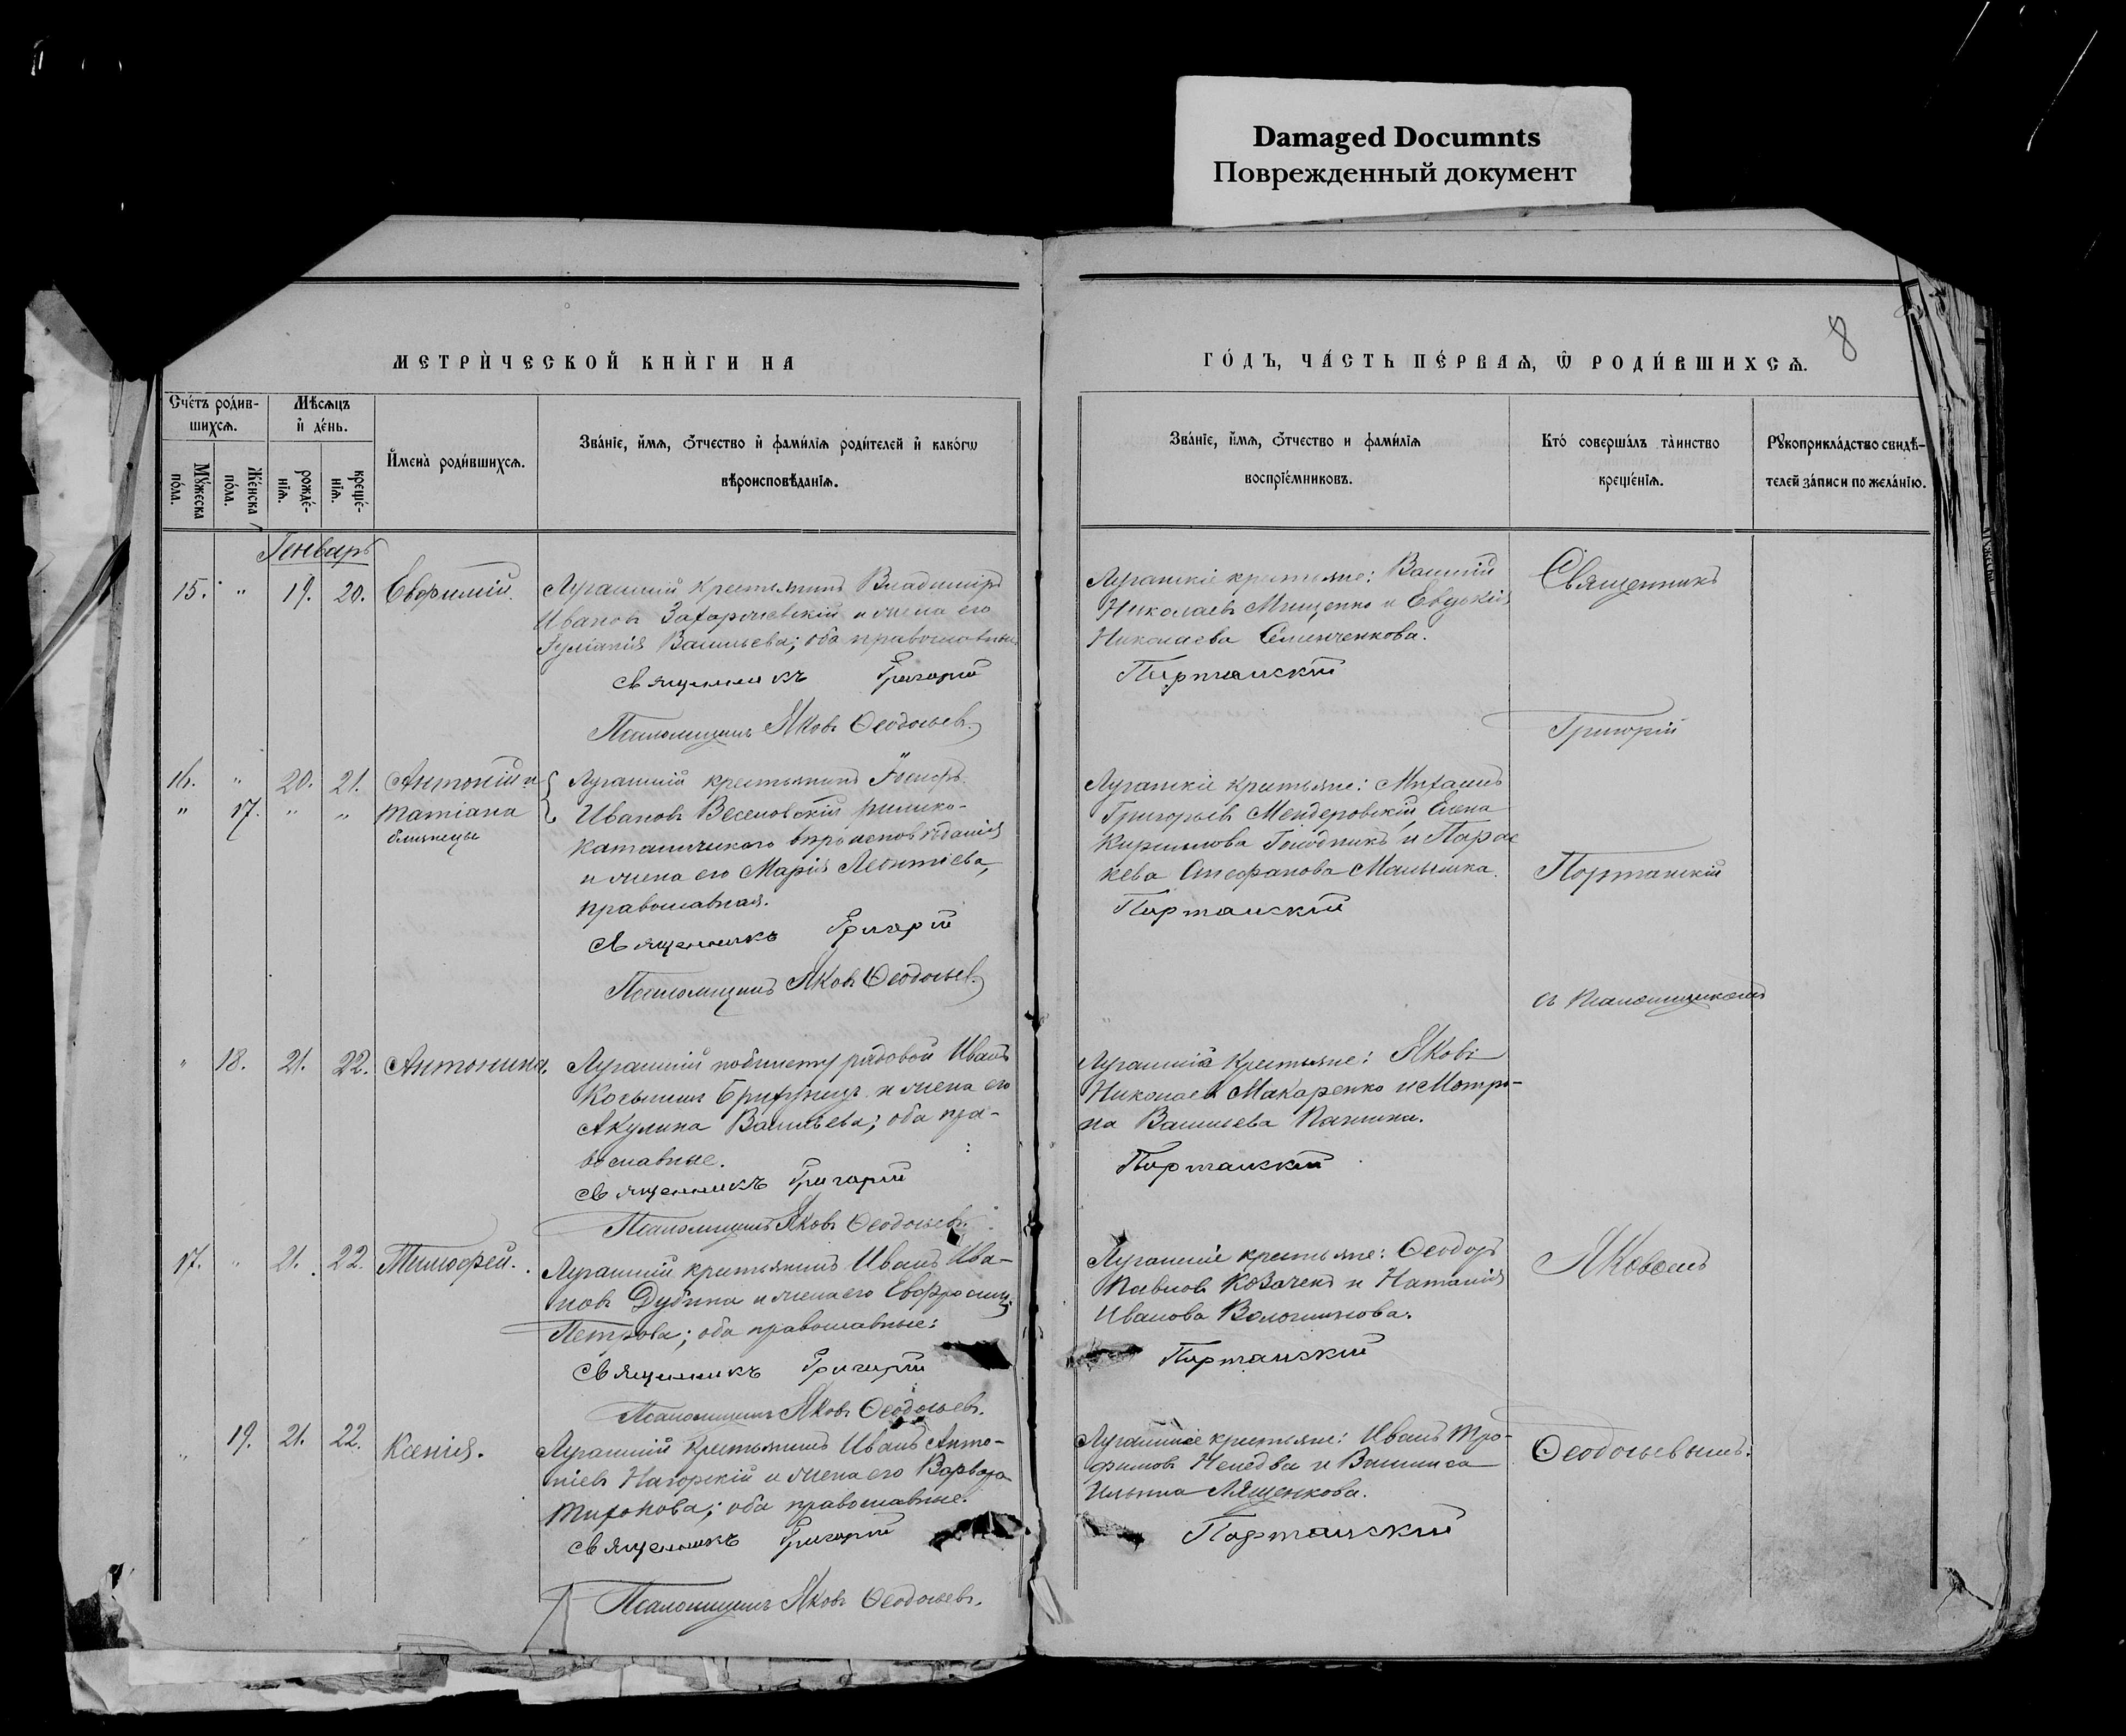 Damaged Documnts
Поврежденный документ
8
МЕТРИ́ЧЕСКОЙ КНИ́ГИ НА
ГО́ДЪ, ЧА́СТЬ ПЕ́РВАѦ, Ѿ РОДИ́ВШИХСѦ.
Сче́тъ роди́в-
шихсѧ.
Мꙋ́жеска
по́ла.
Же́нска
по́ла.
Мѣ́сѧцъ
и҆ де́нь.
рожде́-
нїѧ.
креще́-
нїѧ.
И҆мена̀ роди́вшихсѧ.
Зва́нїе, и҆́мѧ, ѻ҆́тчество и҆ фами́лїѧ роди́телей и҆ како́гѡ
вѣроисповѣ́данїѧ.
Зва́нїе, и҆́мѧ, ѻ҆́тчество и фами́лїѧ
воспрїе́мниковъ.
Кто́ соверша́лъ та̀инство
креще́нїѧ.
Рꙋкоприкла́дство свидѣ́-
телей за́писи по жела́нїю.
Генварь
15. " 19. 20. Евфимій.
Луганскій крестьянинъ Владиміръ
Ивановъ и жена его
Іуліанія Васильева; оба православные
Священникъ Григорій
Псаломщикъ Яковъ Ѳеодосьевъ.
Луганскіе крестьяне: Василій
Николаевъ Мищенко и Евдокія
Николаева Семенченкова.
Портанскій
Священникъ
Григорій
16. " 20. 21. Антоній и
" 17. " " Татіана
близнецы
Луганскій крестьянинъ Іосифъ
Ивановъ Веселовскій римско-
католическаго вѣроисповѣданія
и жена его Марія Леонтіева,
православная.
Священникъ Григорій
Псаломщикъ Яковъ Ѳеодосьевъ
Луганскіе крестьяне: Михаилъ
Григорьевъ Мендеровскій, Елена
Кириллова и Парас
кева Стефанова Малышка.
Портанскій
Портанскій
съ Псаломщикомъ
" 18. 21. 22. Антонина.
Луганскій рядовой Иванъ
Косьминъ и жена его
Акулина Васильева; оба пра-
вославные.
Священникъ Григорій
Псаломщикъ Яковъ Ѳеодосьевъ.
Луганскіе крестьяне: Яковъ
Николаевъ Макаренко и Мотро-
на Васильева
Портанскій
17. " 21. 22. Тимофей.
Луганскій крестьянинъ Иванъ Ива-
новъ Дубина и жена его Евфросинія
Петрова; оба православные:
Священникъ Григорій
Псаломщикъ Яковъ Ѳеодосьевъ.
Луганскіе крестьяне: Ѳеодоръ
Павловъ Козаченко и Наталія
Иванова
Портанскій
Яковомъ
" 19. 21. 22. Ксенія.
Луганскій крестьянинъ Иванъ Анто-
ніевъ Нагорскій и жена его Варвара
Тихонова; оба православные.
Священникъ Григорій
Псаломщикъ Яковъ Ѳеодосьевъ.
Луганскіе крестьяне: Иванъ Тро-
фимовъ и Василиса
Ильина Лященкова.
Портанскій
Ѳеодосьевымъ.